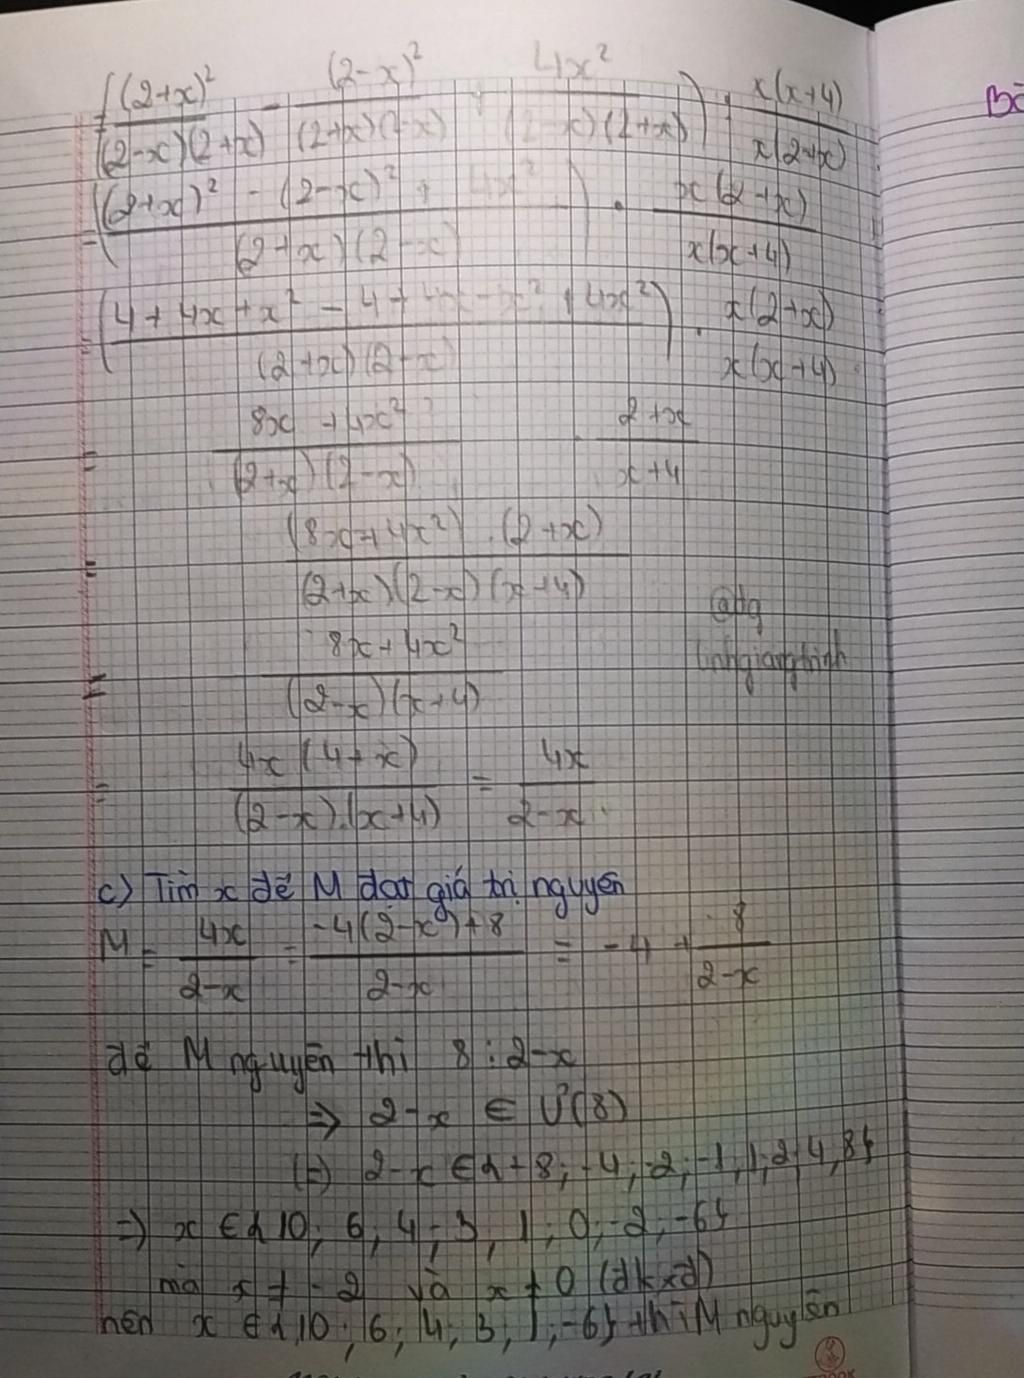 ((2+x)²/(2-x)(2+x) - (2-x)²/(2+x)(2-x) + 4x²/(2-x)(2+x)) : x(x+4)/x(2+x)
= ((2+x)² - (2-x)² + 4x²)/(2+x)(2-x) . x(2+x)/x(x+4)
= (4+4x+x² - 4+4x-x²+4x²)/(2+x)(2-x) . x(2+x)/x(x+4)
= 8x+4x²/(2+x)(2-x) . 2+x/x+4
= (8x+4x²).(2+x)/(2+x)(2-x)(x+4)
= 8x+4x²/(2-x)(x+4)
= 4x(4+x)/(2-x).(x+4) = 4x/2-x
c) Tìm x để M đạt giá trị nguyên
M = 4x/2-x = -4(2-x)+8/2-x = -4 + 8/2-x
để M nguyên thì 8 ⋮ 2-x
=> 2-x ∈ Ư(8)
(=) 2-x ∈ {-8; -4; -2; -1; 1; 2; 4; 8}
=> x ∈ {10; 6; 4; 3; 1; 0; -2; -6}
mà x ≠ -2 và x ≠ 0 (đkxđ)
nên x ∈ {10; 6; 4; 3; 1; -6} thì M nguyên